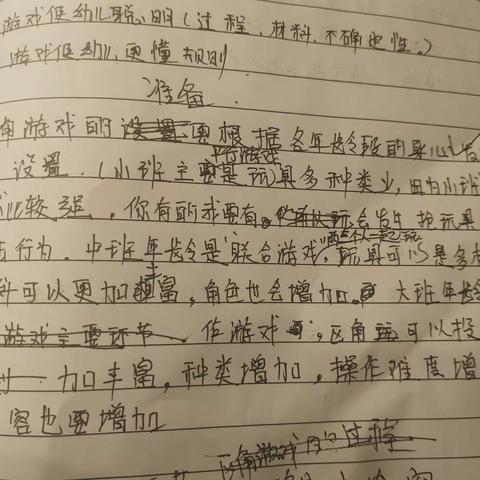 游戏使幼儿聪明(过程、材料、不确定性。)
游戏使幼儿更懂规则
准备
角游戏的设置要根据各年龄段的身心发
平行游戏
设置.(小班主要是玩具多种类少,因为小班
比较强,你有的我要有。会发生抢玩具
行为.中班年龄是联合游戏,玩具可以是多
两三个人一起玩
料可以更加丰富,角色也会增加。大班年龄
游戏主要环节.作游戏,区角可以投
加丰富,种类增加,操作难度增
容也要增加
区角游戏的过程